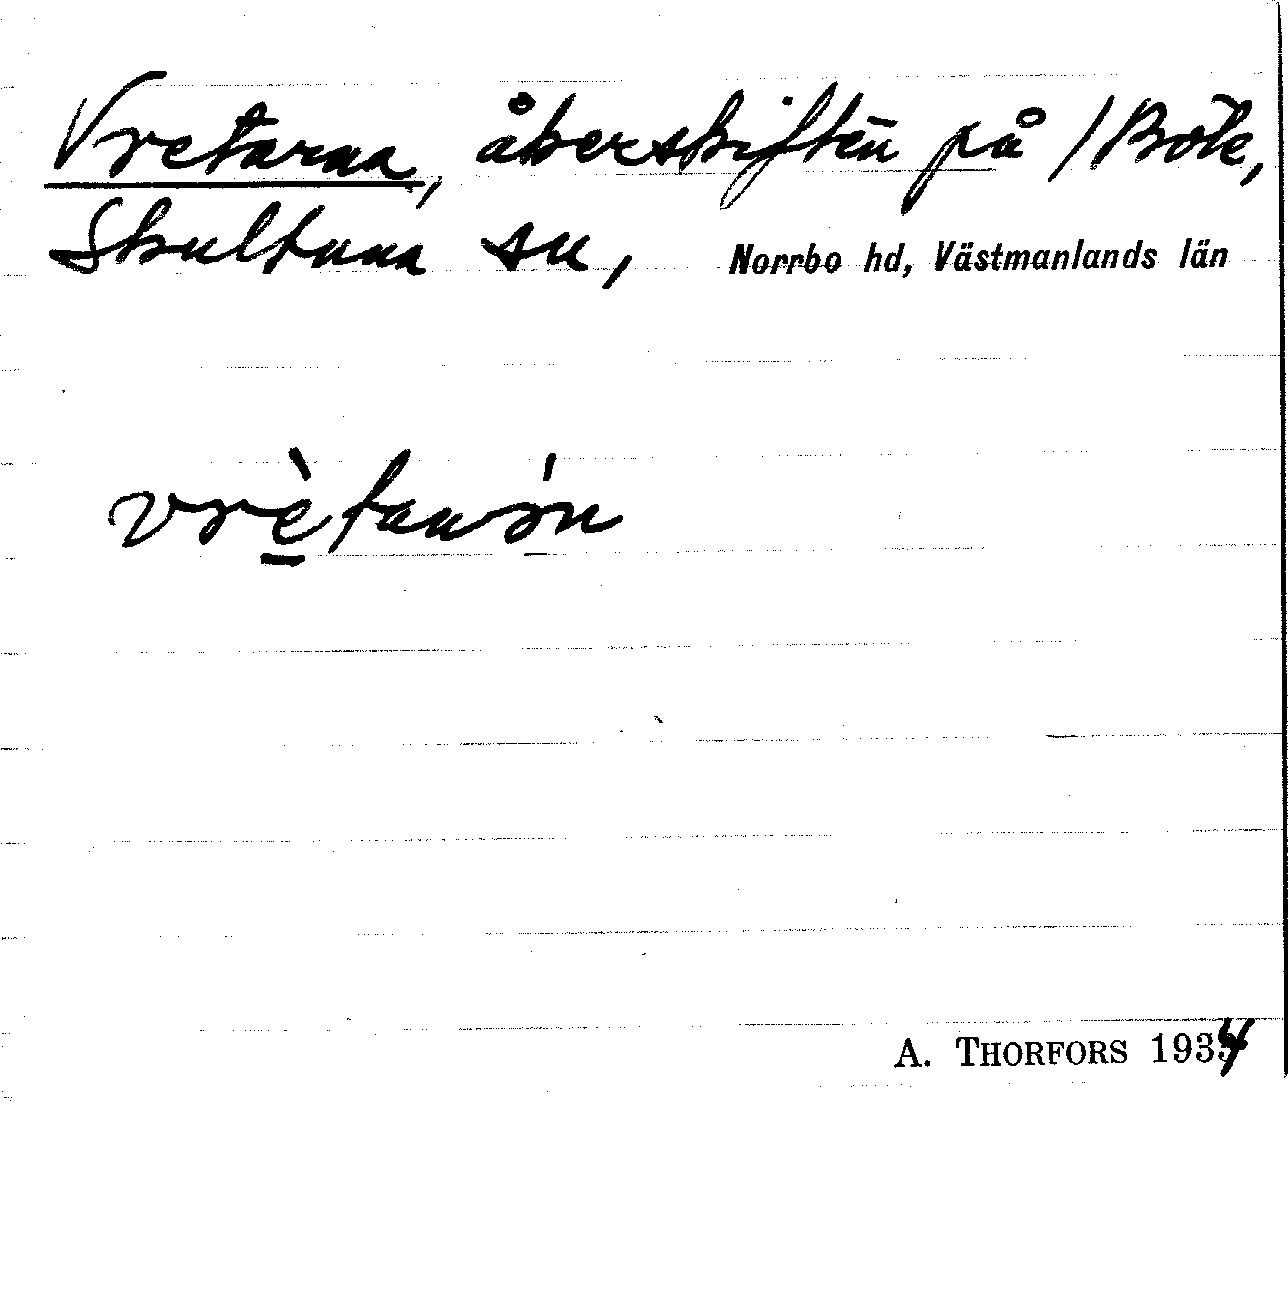 Vretarna, åkerskiften på /Böle,
Skultuna sn, Norrbo hd, Västmanlands län
A. THORFORS 1934